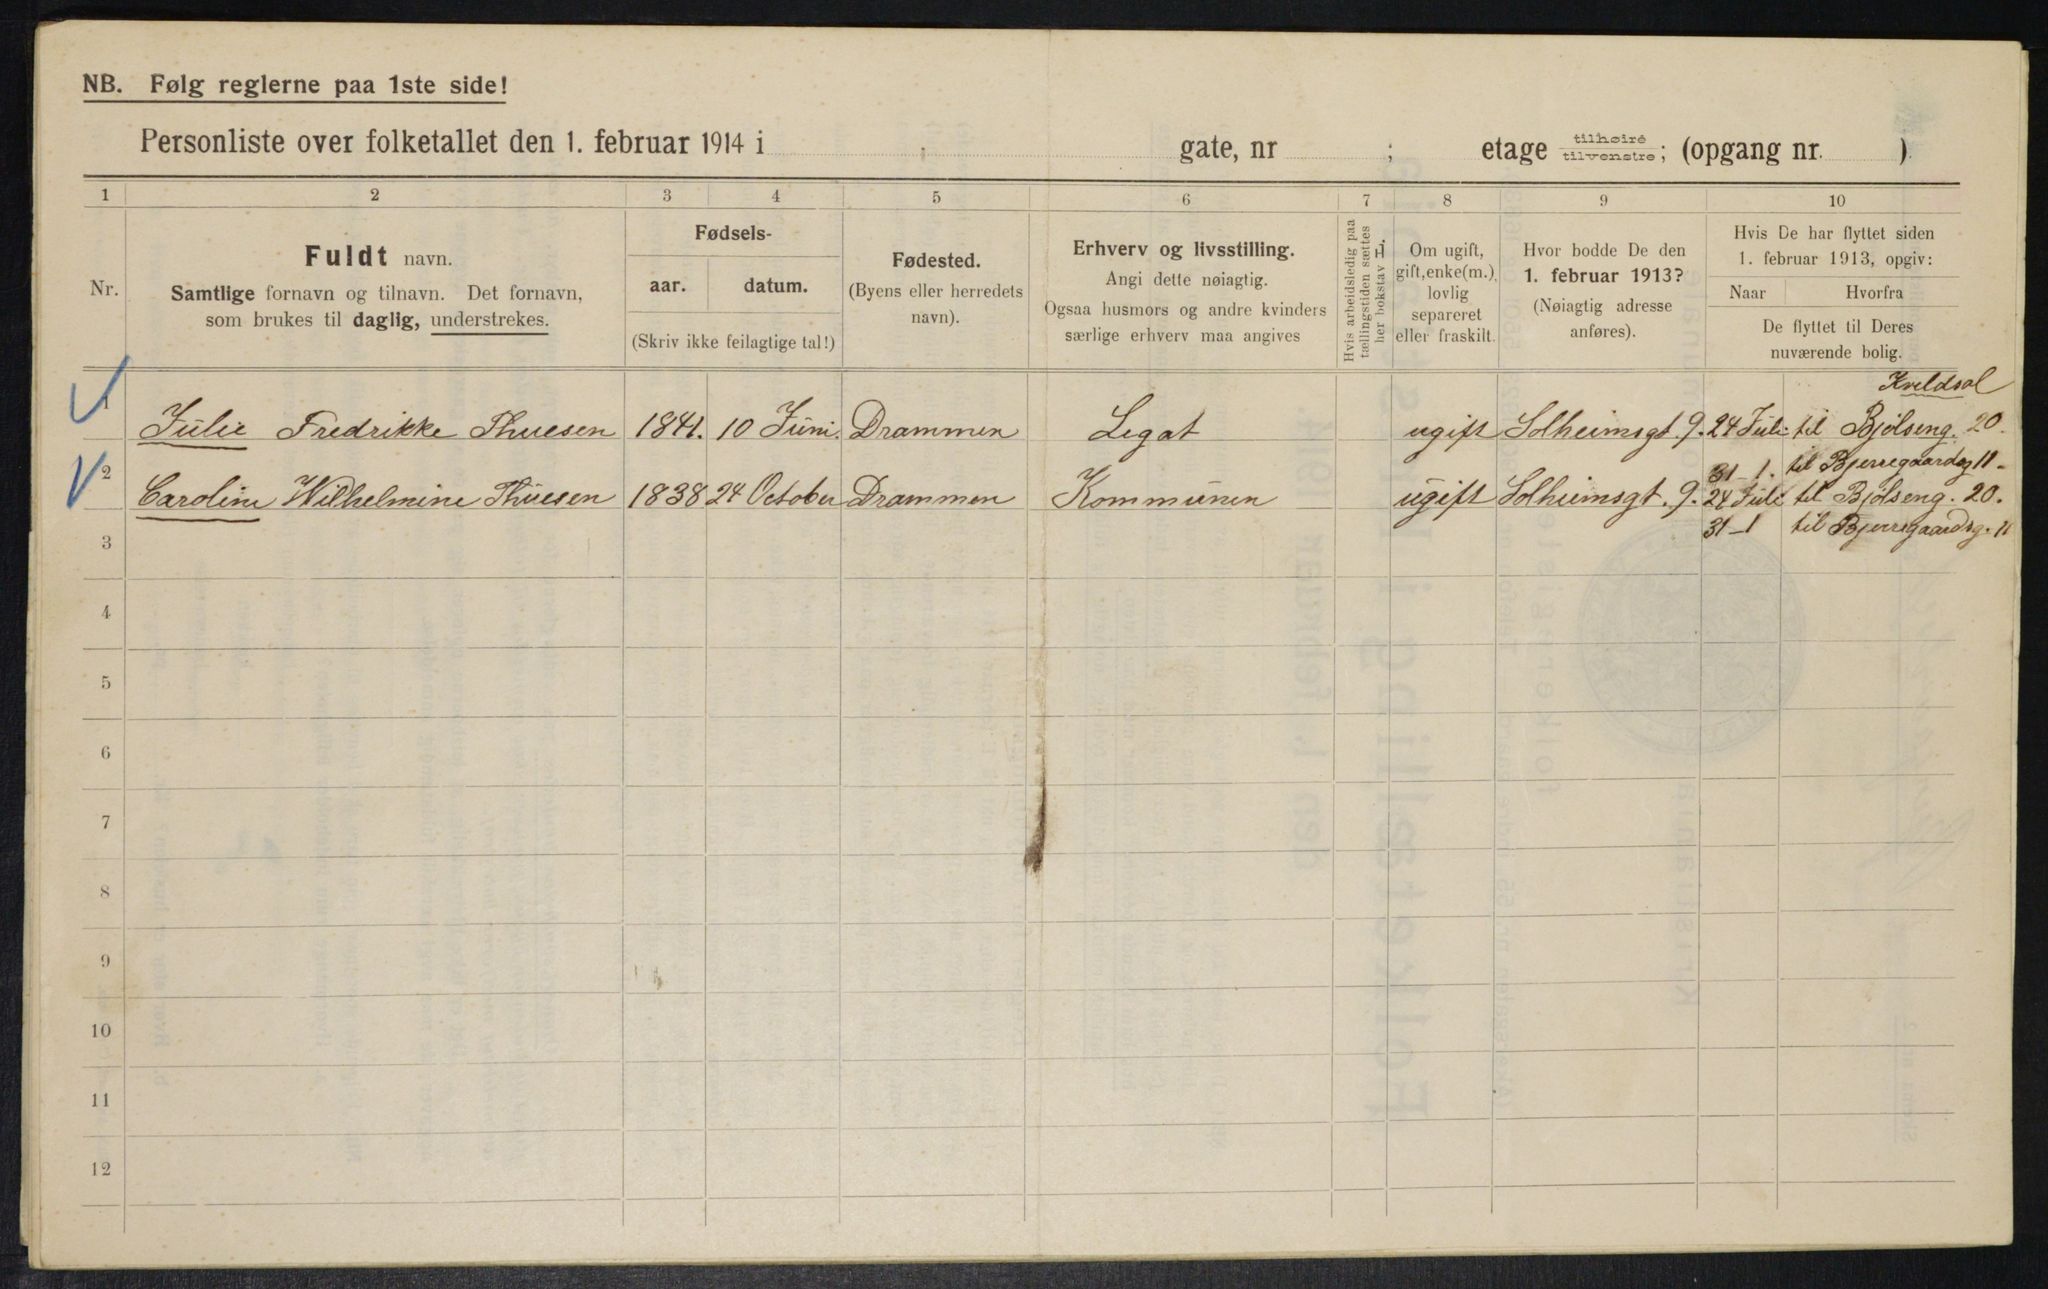 NB. Følg reglerne paa 1ste side!
Personliste over folketallet den 1. februar 1914 i gate, nr ; etage tilhøire tilvenstre; (opgang nr. )
1 2 3 4 5 6 7 8 9 10
Nr.
Fuldt navn.
Samtlige fornavn og tilnavn. Det fornavn,
som brukes til daglig, understrekes.
Fødsels-
aar. datum.
(Skriv ikke feilagtige tal!)
Fødested.
(Byens eller herredets
navn).
Erhverv og livsstilling.
Angi dette nøiagtig.
Ogsaa husmors og andre kvinders
særlige erhverv maa angives
Hvis arbeidsledig paa
tællingstiden sættes
her bokstav L.
Om ugift,
gift, enke(m.),
lovlig
separeret
eller fraskilt.
Hvor bodde De den
1. februar 1913?
(Nøiagtig adresse
anføres).
Hvis De har flyttet siden
1. februar 1913, opgiv:
Naar Hvorfra
De flyttet til Deres
nuværende bolig.
Kveldsol
1 Julie Fredrikke Thuesen 1841. 10 Juni. Drammen Legat ugift Solheimsgt. 9. 24 Juli til Bjølseng. 20.
31-1. til Bjerregaardsg 11.
2 Caroline Wilhelmine Thuesen 1838 24 October Drammen Kommunen ugift Solheimsgt. 9. 24 Juli til Bjølseng. 20.
31-1 til Bjerregaardsg. 11
3
4
5
6
7
8
9
10
11
12